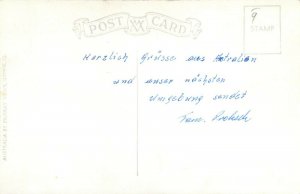 POST CARD
9
STAMP
Herzlich Grüsse aus Australien
und unser nächsten
Umgebung sendet
Fam.